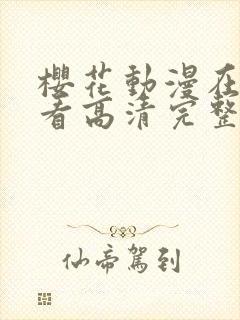 櫻花動漫在
看高清完整
仙帝駕到